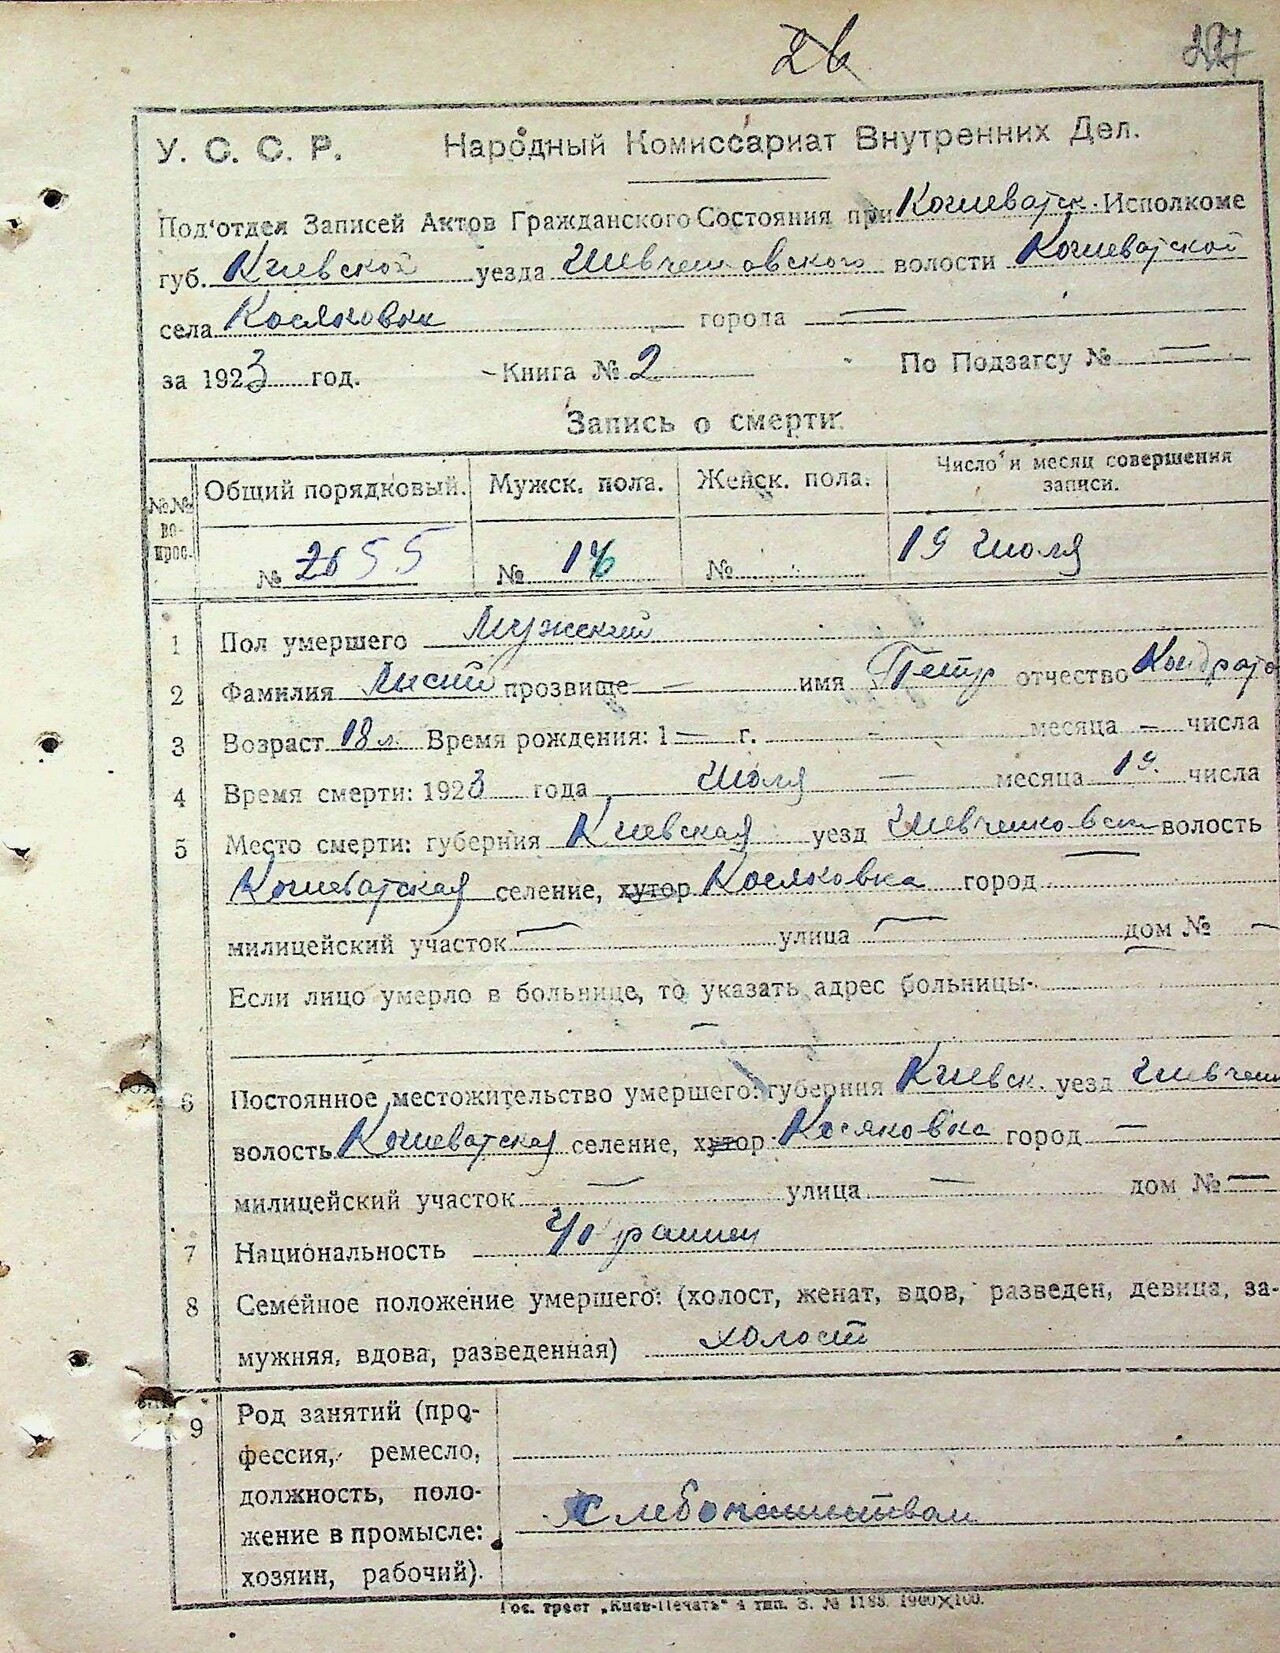 26
У. С. С. Р. Народный Комиссариат Внутренних Дел.
Под'отдел Записей Актов Гражданского Состояния при Кошеватск. Исполкоме
губ. Киевской уезда Шевченковского волости Кошеватской
села Косяковки города —
за 1923 год. Книга № 2 По Подзагсу № —
Запись о смерти.
№№ вопрос. Общий порядковый. Мужск. пола. Женск. пола. Число и месяц совершения записи.
№ 55 № № 19 Июля
1 Пол умершего Мужский
2 Фамилия Лисий прозвище — имя Петр отчество Кондрато
3 Возраст 18 л. Время рождения: 1 — г. — месяца — числа
4 Время смерти: 1923 года Июля — месяца 19. числа
5 Место смерти: губерния Киевская уезд Шевченковск волость
Кошеватская селение, хутор Косяковка город —
милицейский участок — улица — дом № —
Если лицо умерло в больнице, то указать адрес больницы
—
6 Постоянное местожительство умершего: губерния Киевск. уезд Шевченк
волость Кошеватская селение, хутор Косяковка город —
милицейский участок — улица — дом № —
7 Национальность Украинец
8 Семейное положение умершего: (холост, женат, вдов, разведен, девица, за-
мужняя, вдова, разведенная) холост
9 Род занятий (про-
фессия, ремесло,
должность, поло-
жение в промысле:
хозяин, рабочий). Хлебопашеством
Гос. трест „Киев-Печать“ 4 тип. З. № 1188. 1900×100.